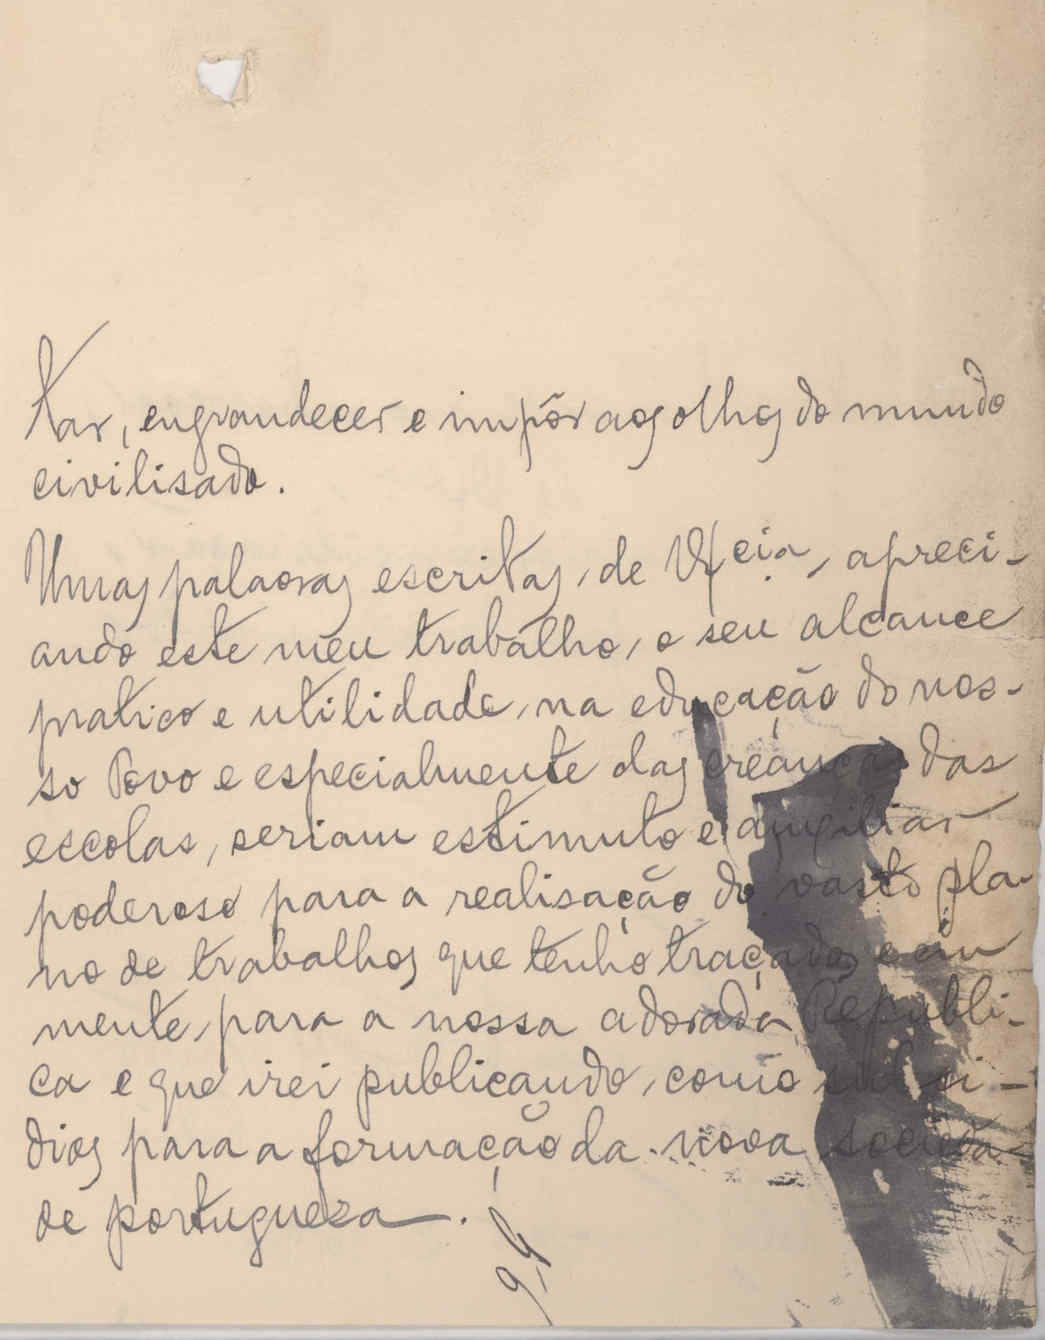 tar, engrandecer e impôr aos olhos do mundo
civilisado.
Umas palavras escritas, de V. Ecia, apreci-
ando este meu trabalho, o seu alcance
pratico e utilidade, na educação do nos-
so Povo e especialmente das creanças das
escolas, seriam estimulo e auxiliar
poderoso para a realisação do vasto pla-
no de trabalhos que tenho traçados em
mente, para a nossa adorada Republi-
ca e que irei publicando, como subsi-
dios para a formação da nova socieda-
de portugueza.